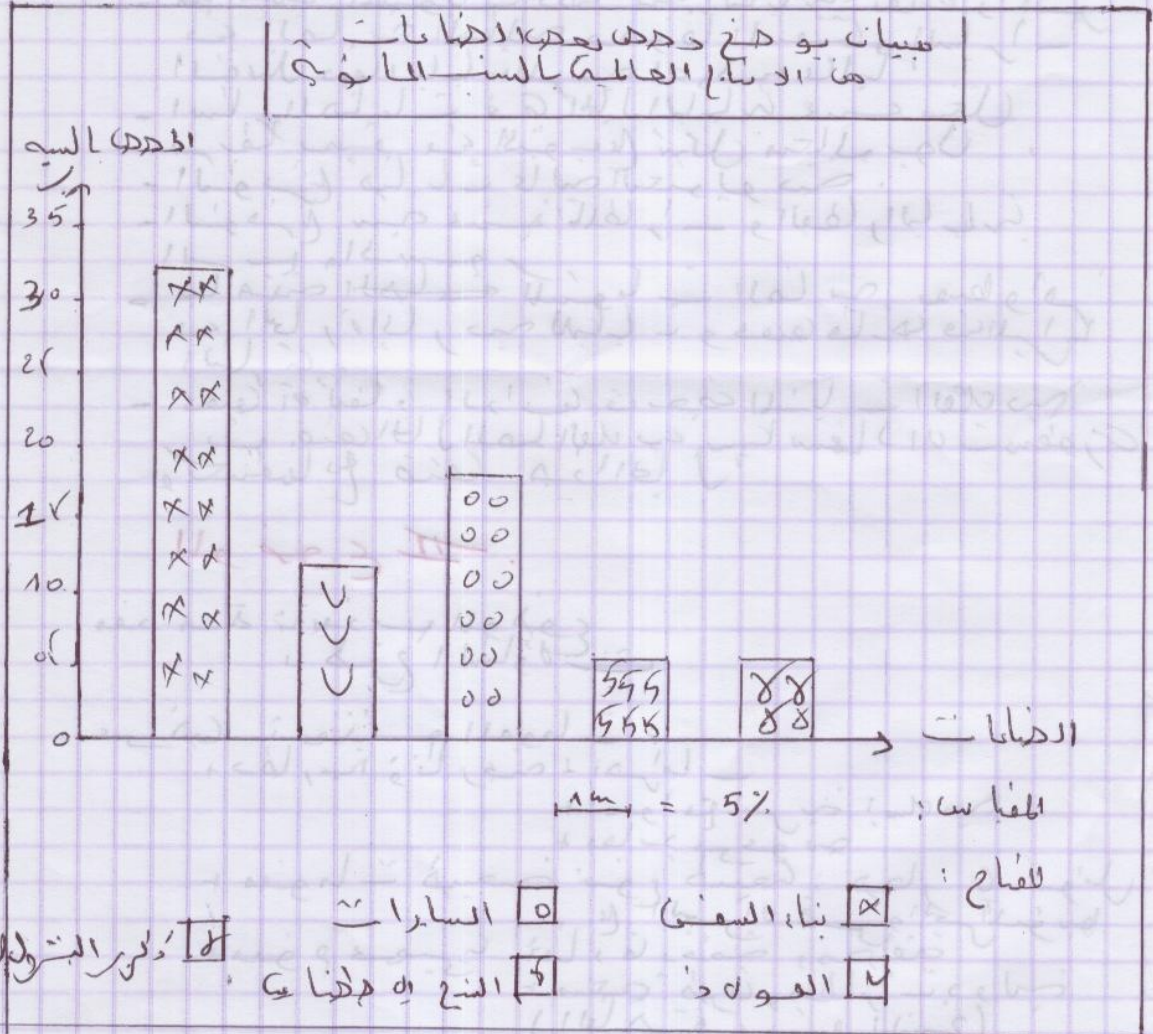 مبيان يوضح حصص بعض الصناعات
من الانتاج العالمي بالنسب المائوية
الحصص بالنسبة
35
30
25
20
15
10
05
0
الصناعات
المقياس: 1cm = 5%
المفتاح:
x بناء السفن o السيارات
الفولاذ 5 النسيج الاصطناعي 8 تكرير البترول